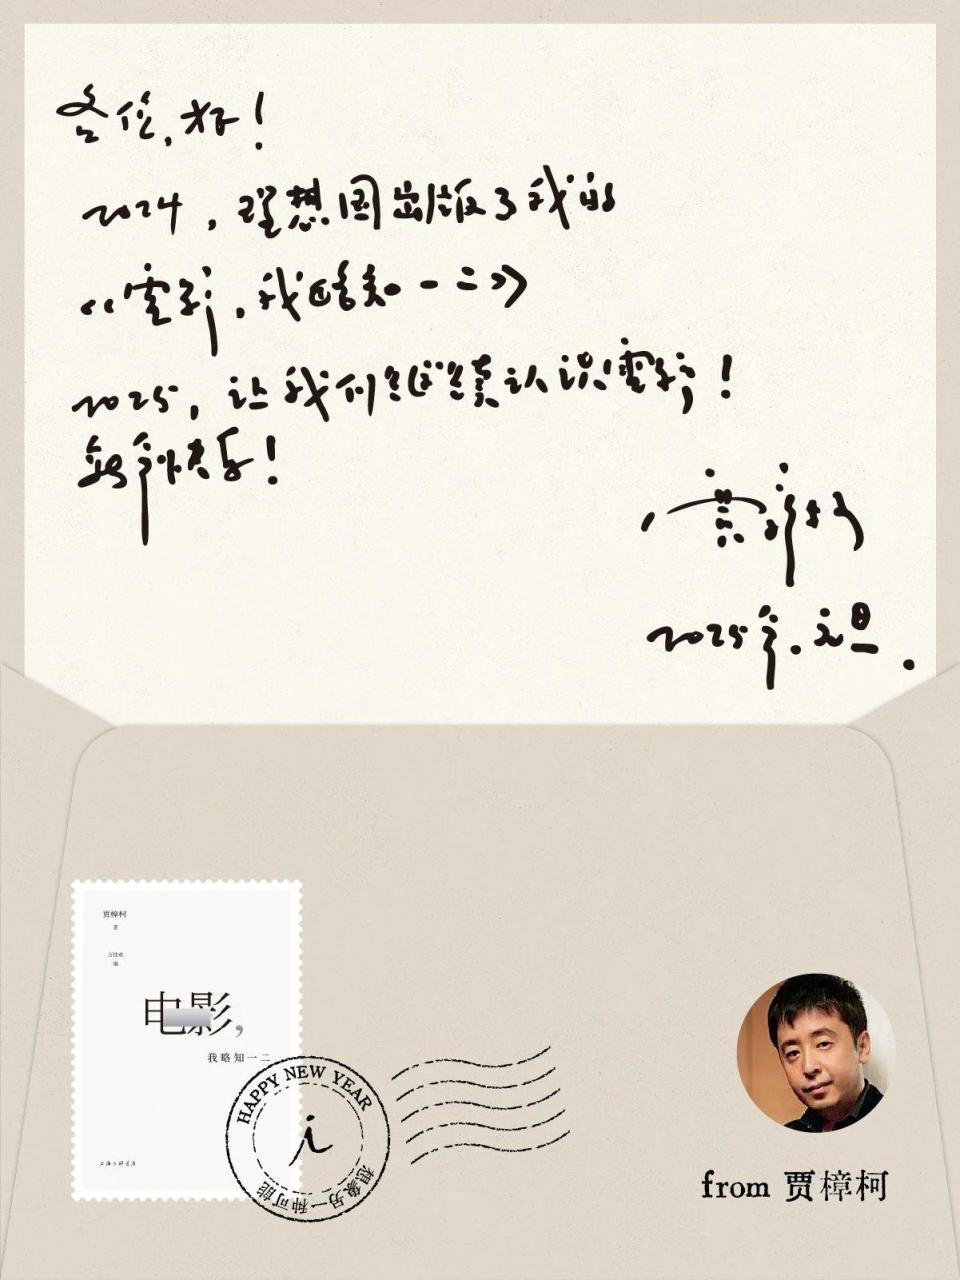 各位,好!
2024,理想国出版了我的
《電影,我略知一二》
2025,让我们继续认识電影!
新年快乐!
贾樟柯
2025年.元旦.
贾樟柯
著
万佳欢
编
电影,
我略知一二
上海三联书店
HAPPY NEW YEAR
i
想象另一种可能
from 贾樟柯